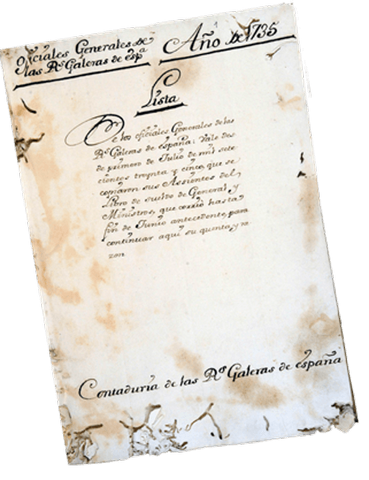 Oficiales Generales de
las Rs Galeras de espa
Año de 1735
Lista
De los oficiales Generales de las
Rs Galeras de españa: Vale des
de primero de Julio de mil sete
cientos treynta y cinco, que se
copiaron sus Assientos del
libro de sueldo de General, y
Ministros, que corrió hasta
fin de Junio antecedente, para
continuar aqui su quenta, y ra
zon
Contaduria de las Rs Galeras de españa